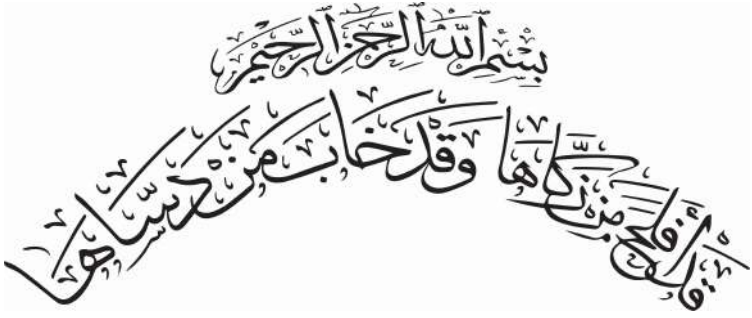 بسم الله الرحمن الرحيم
قد أفلح من زكاها وقد خاب من دساها